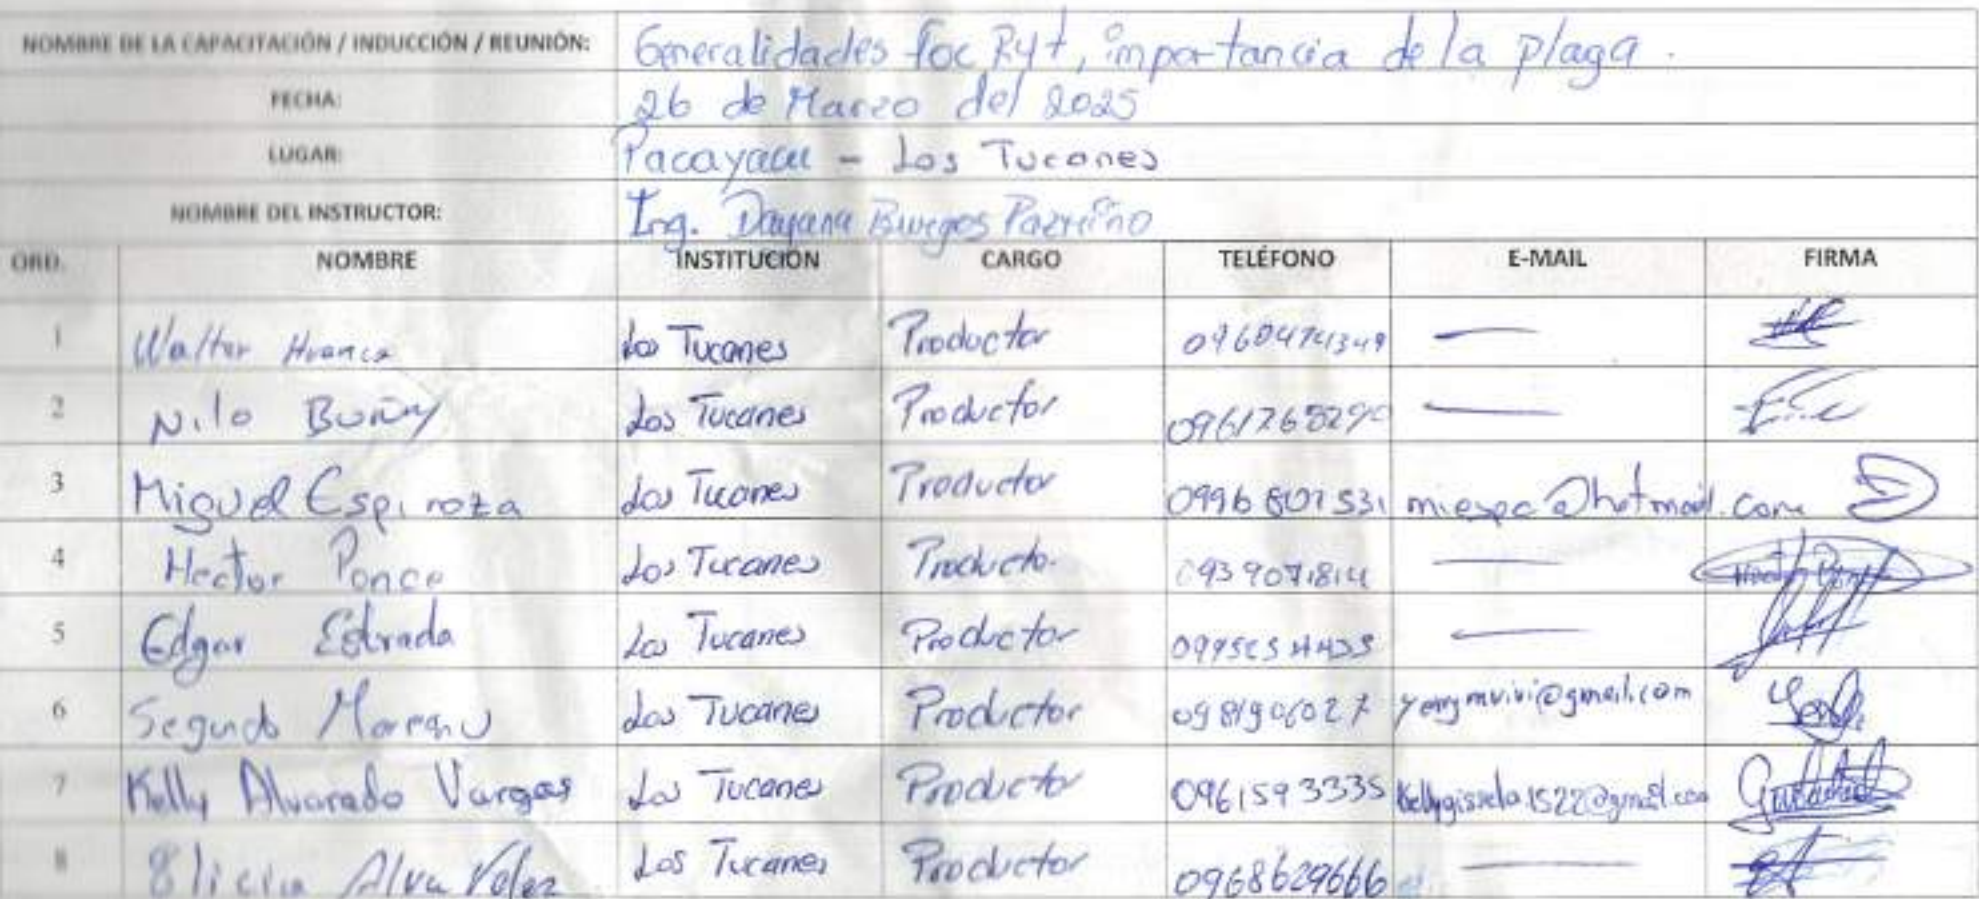 NOMBRE DE LA CAPACITACIÓN / INDUCCIÓN / REUNIÓN: Generalidades foc R4t, importancia de la plaga.
FECHA: 26 de Marzo del 2025
LUGAR: Pacayacu - Los Tucanes
NOMBRE DEL INSTRUCTOR: Ing. Dayana Burgos Pazmiño
ORD. NOMBRE INSTITUCIÓN CARGO TELÉFONO E-MAIL FIRMA
1 Walter Huanca Los Tucanes Productor —
2 Nilo Los Tucanes Productor —
3 Miguel Espinoza Los Tucanes Productor @hotmail.com
4 Hector Ponce Los Tucanes Producto. —
5 Edgar Estrada Los Tucanes Productor —
6 Segundo Moreno Los Tucanes Productor 0981906027 yengmvivi@gmail.com
7 Kelly Alvarado Vargas Los Tucanes Productor 0961593335 kellygissela1522@gmail.com
8 Alva Velez Los Tucanes Productor 0968629666 —